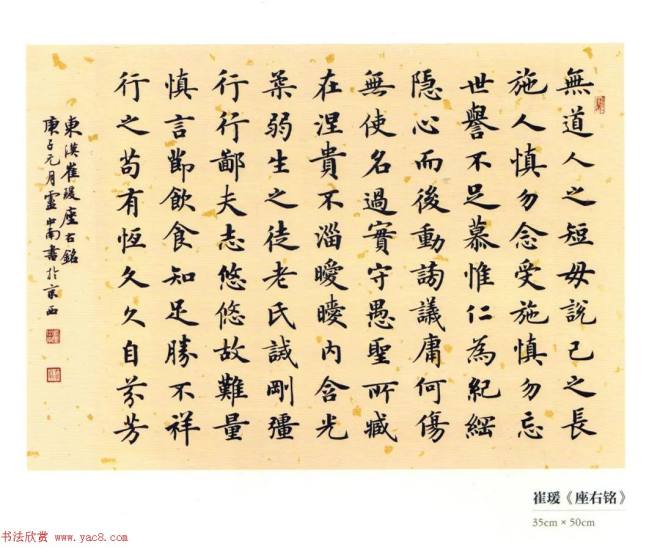 無道人之短毋說己之長
施人慎勿念受施慎勿忘
世譽不足慕惟仁為紀綱
隱心而後動謗議庸何傷
無使名過實守愚聖所臧
在涅貴不淄曖曖內含光
柔弱生之徒老氏誡剛彊
行行鄙夫志悠悠故難量
慎言節飲食知足勝不祥
行之苟有恆久久自芬芳
東漢崔瑗座右銘
庚子元月盧中南書於京西
崔瑗《座右铭》
35cm × 50cm
书法欣赏 www.yac8.com